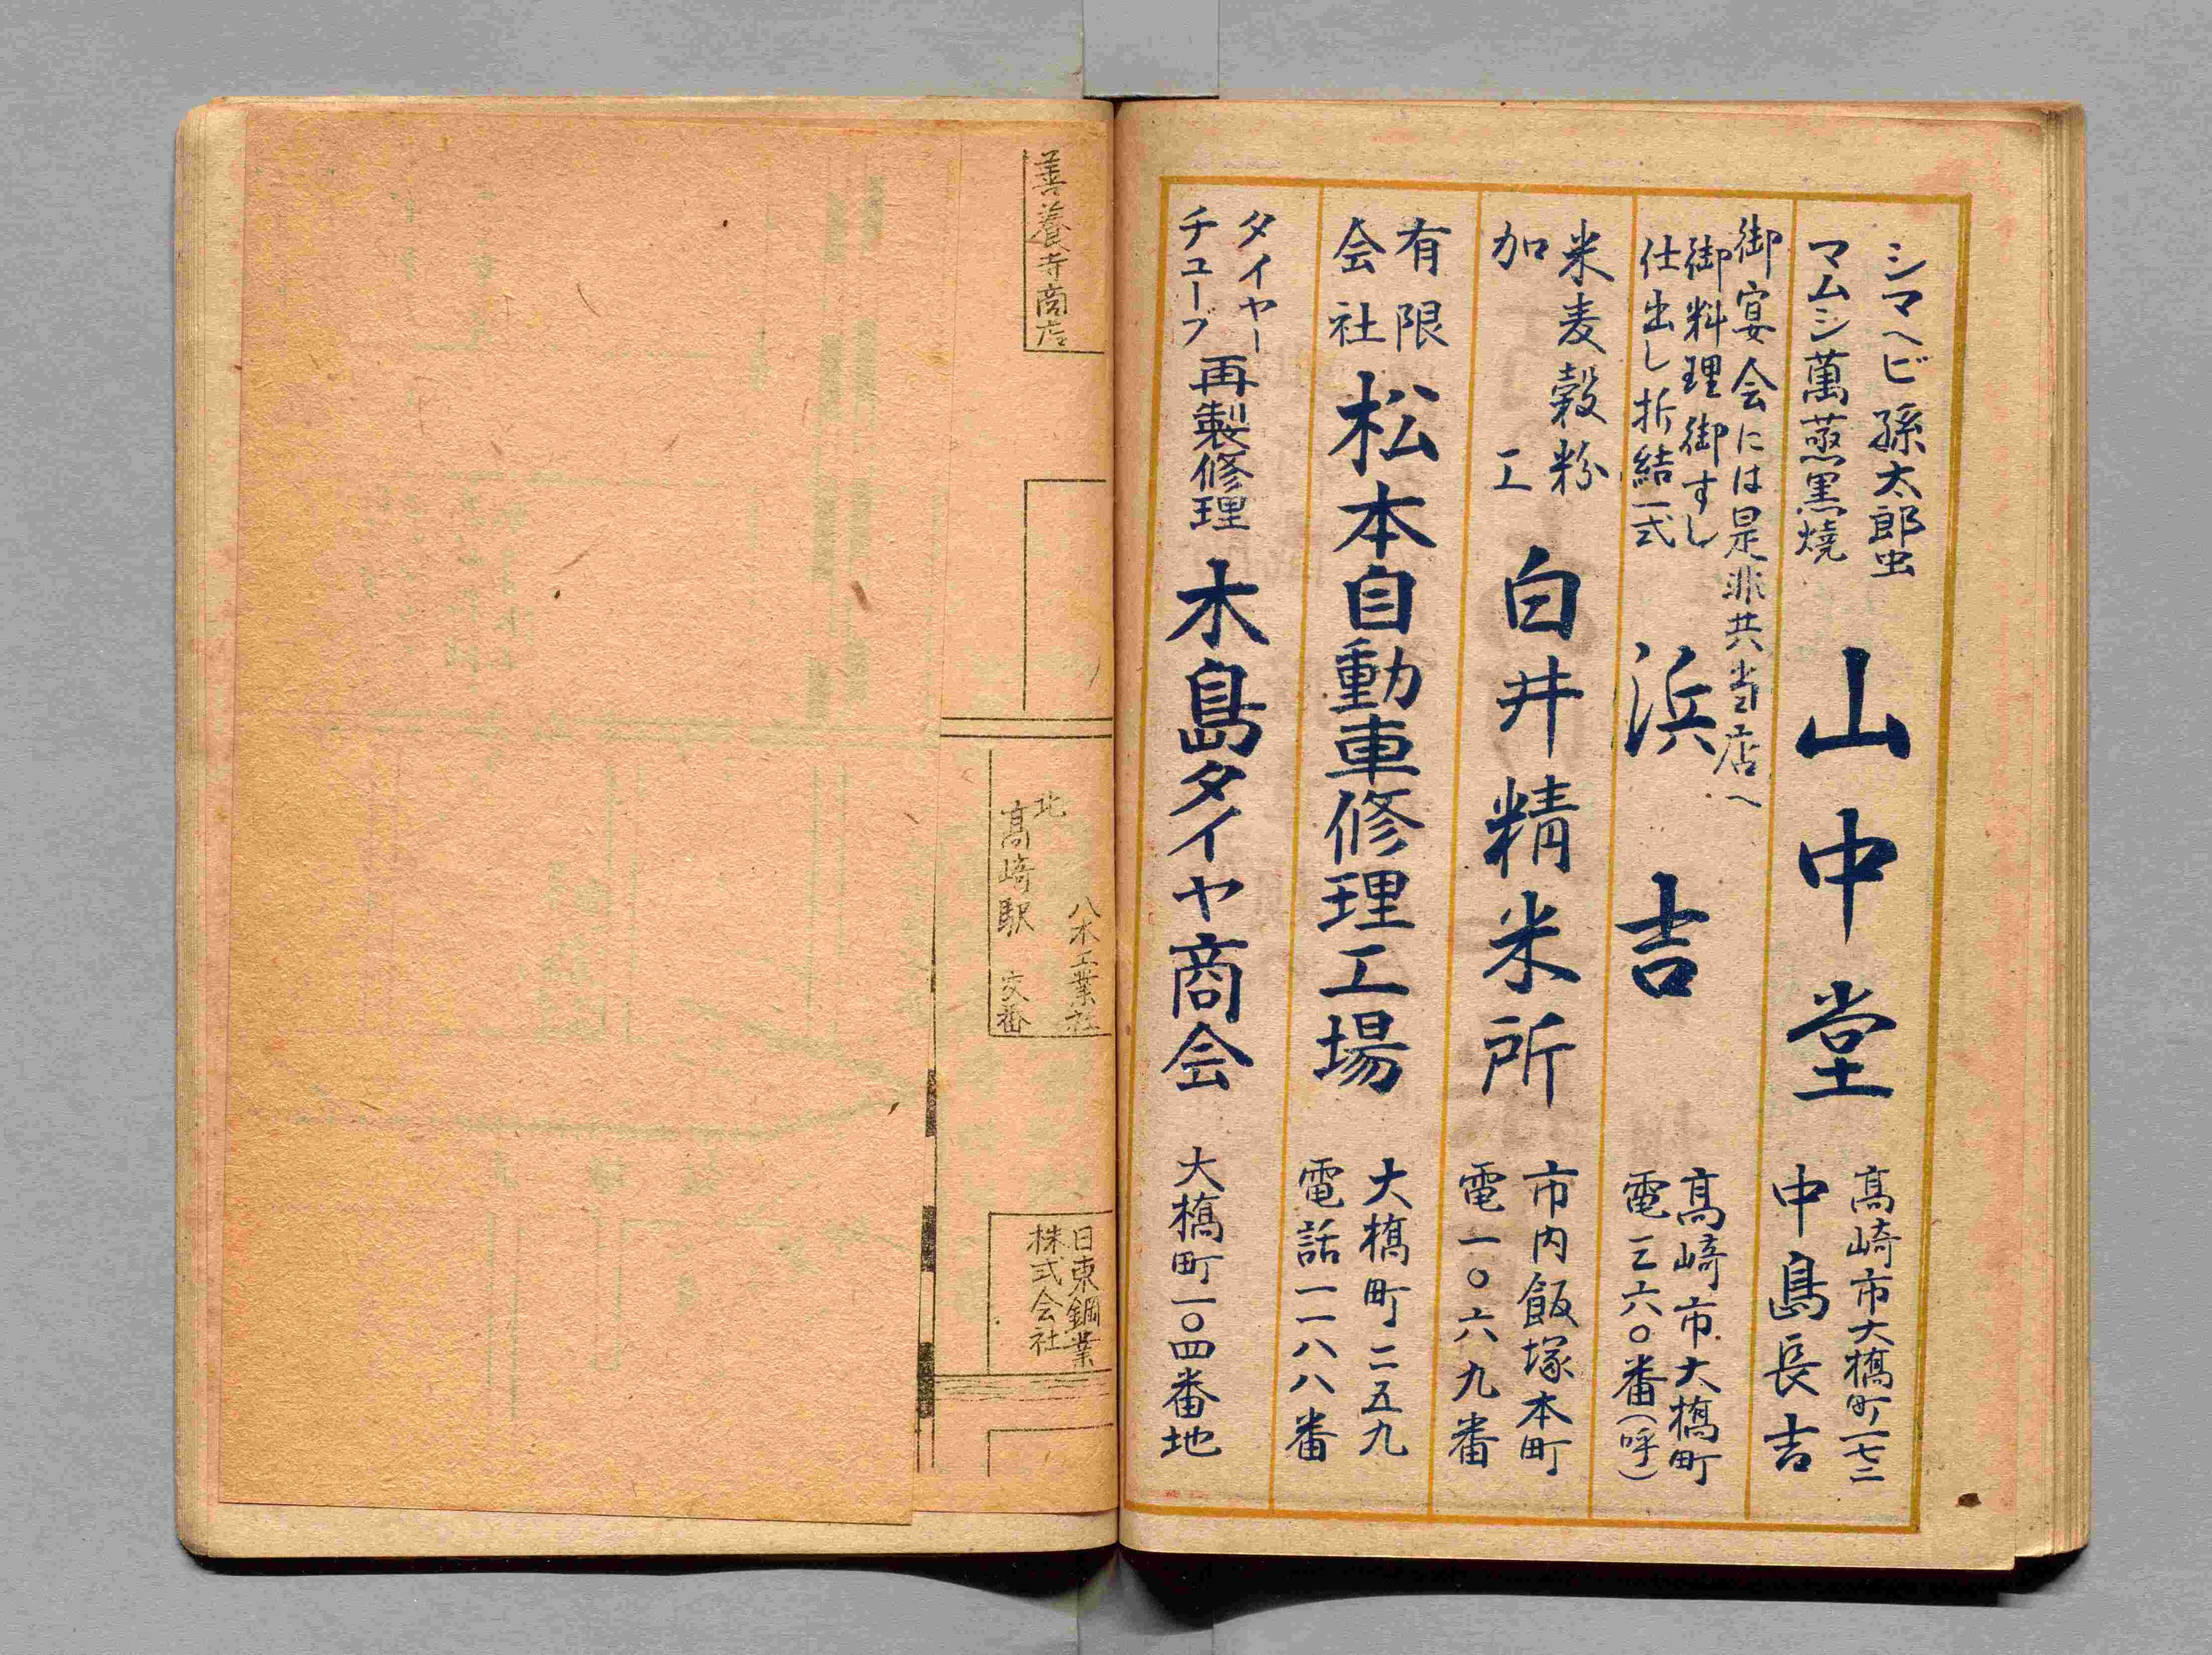 シマヘビ孫太郎虫
マムシ萬蒸黒焼
山中堂
高崎市大橋町一七二
中島長吉
御宴会には是非共当店へ
御料理御すし
仕出し折結一式
浜吉
高崎市大橋町
電三六〇番(呼)
米麦穀粉
加工
白井精米所
市内飯塚本町
電一〇六九番
有限
会社
松本自動車修理工場
大橋町二五九
電話一一八八番
タイヤー
チューブ
再製修理
木島タイヤ商会
大橋町一〇四番地
善養寺商店
八木工業社
北
高崎駅
交番
日東鋼業
株式会社